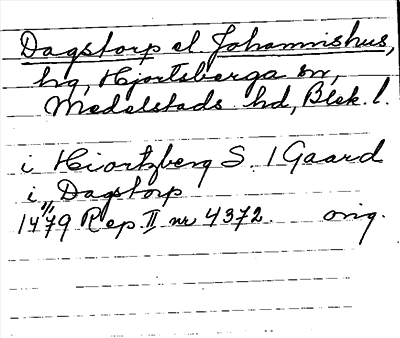 Dagstorp el. Johannishus,
hg, Hjortsberga sn,
Medelstads hd, Blek. l.
i Hiortzberg S. 1 Gaard
i Dagstorp
14 11/4 79 Rep. II nr 4372. orig.